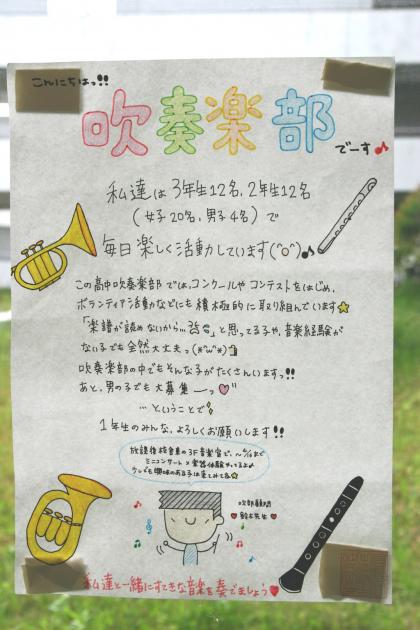 こんにちはっ!!
吹奏楽部
でーす♪
私達は3年生12名, 2年生12名
(女子20名, 男子4名)で
毎日楽しく活動しています(^o^)♪
この高中吹奏楽部では,コンクールやコンテストをはじめ,
ボランティア活動などにも積極的に取り組んでいます☆
「楽譜が読めないから…」と思ってる子や,音楽経験が
ない子でも全然大丈夫っ(*^w^*)
吹奏楽部の中でもそんな子がたくさんいますっ!!
あと,男の子でも大募集—っ♡"
…ということで
1年生のみんな,よろしくお願いします!!
放課後校舎東の3F音楽室で,
ミニコンサート×楽器体験やってるよ♪
少しでも興味のある子は来てみてね☆
吹部顧問
♥鈴木先生♥
私達と一緒にすてきな音楽を奏でましょう♥